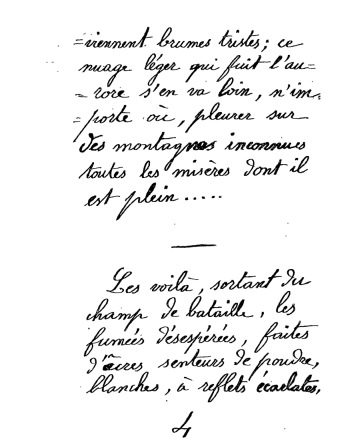 =viennent brumes tristes; ce
nuage léger qui fuit l'au=
=rore s'en va loin, n'im=
=porte où, pleurer sur
des montagnes inconnues
toutes les misères dont il
est plein.....
Les voilà, sortant du
champ de bataille, les
fumées désespérées, faites
d'âcres senteurs de poudre,
blanches, à reflets écarlates,
4